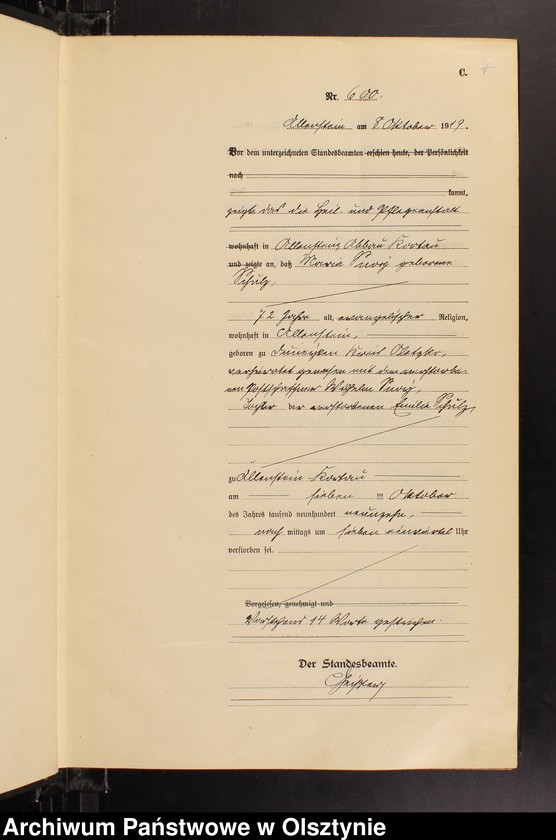 C.
Nr. 600.
Allenstein am 8 Oktober 1919.
Vor dem unterzeichneten Standesbeamten erschien heute, der Persönlichkeit
nach
kannt,
zeigte das die Heil- und Pflegeanstalt
wohnhaft in Allenstein Abbau Kortau
und zeigte an, daß Maria geborene
Schulz,
72 Jahre alt, evangelischer Religion,
wohnhaft in Allenstein,
geboren zu Kreis Oletzko,
verheiratet gewesen mit dem verstorbe-
nen Postschaffner Wilhelm
Tochter der verstorbenen Emilie Schulz,
zu Allenstein Kortau
am sieben ten Oktober
des Jahres tausend neunhundert neunzehn,
nach mittags um sieben einviertel Uhr
verstorben sei.
Vorgelesen, genehmigt und
Vorstehend 14 Worte gestrichen.
Der Standesbeamte.
Archiwum Państwowe w Olsztynie